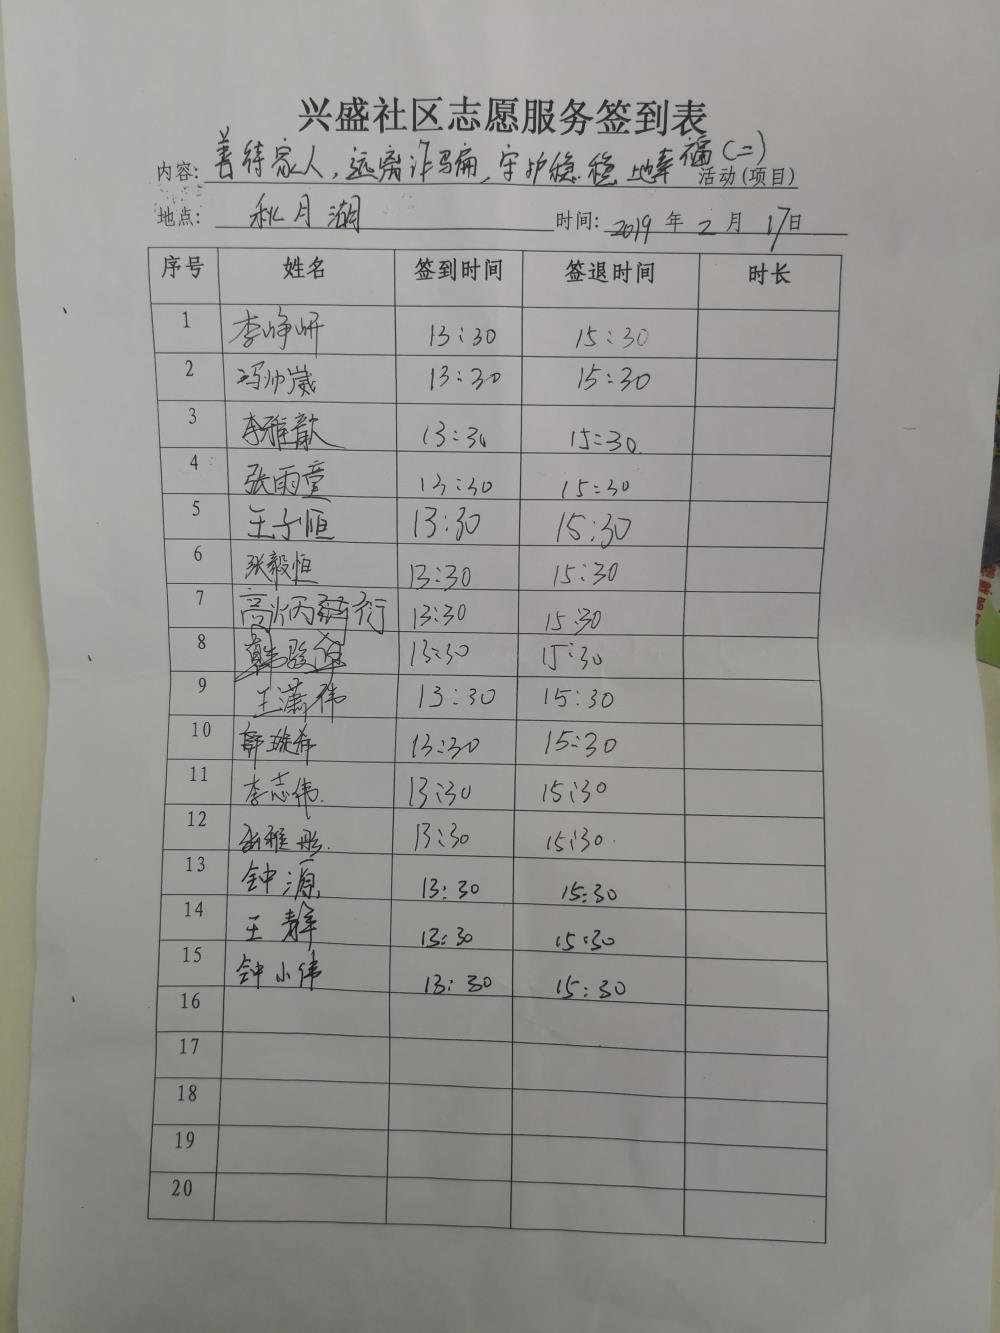 兴盛社区志愿服务签到表
内容: 善待家人，远离诈骗，守护稳稳地幸福(二) 活动(项目)
地点: 秋月湖 时间: 2019 年 2 月 17日
序号 姓名 签到时间 签退时间 时长
1 李峥妍 13:30 15:30
2 冯帅崴 13:30 15:30
3 李雅歆 13:30 15:30
4 张雨童 13:30 15:30
5 王子恒 13:30 15:30
6 张毅恒 13:30 15:30
7 13:30 15:30
8 13:30 15:30
9 王潇伟 13:30 15:30
10 13:30 15:30
11 李志伟 13:30 15:30
12 13:30 15:30
13 钟源 13:30 15:30
14 王静 13:30 15:30
15 钟小伟 13:30 15:30
16
17
18
19
20